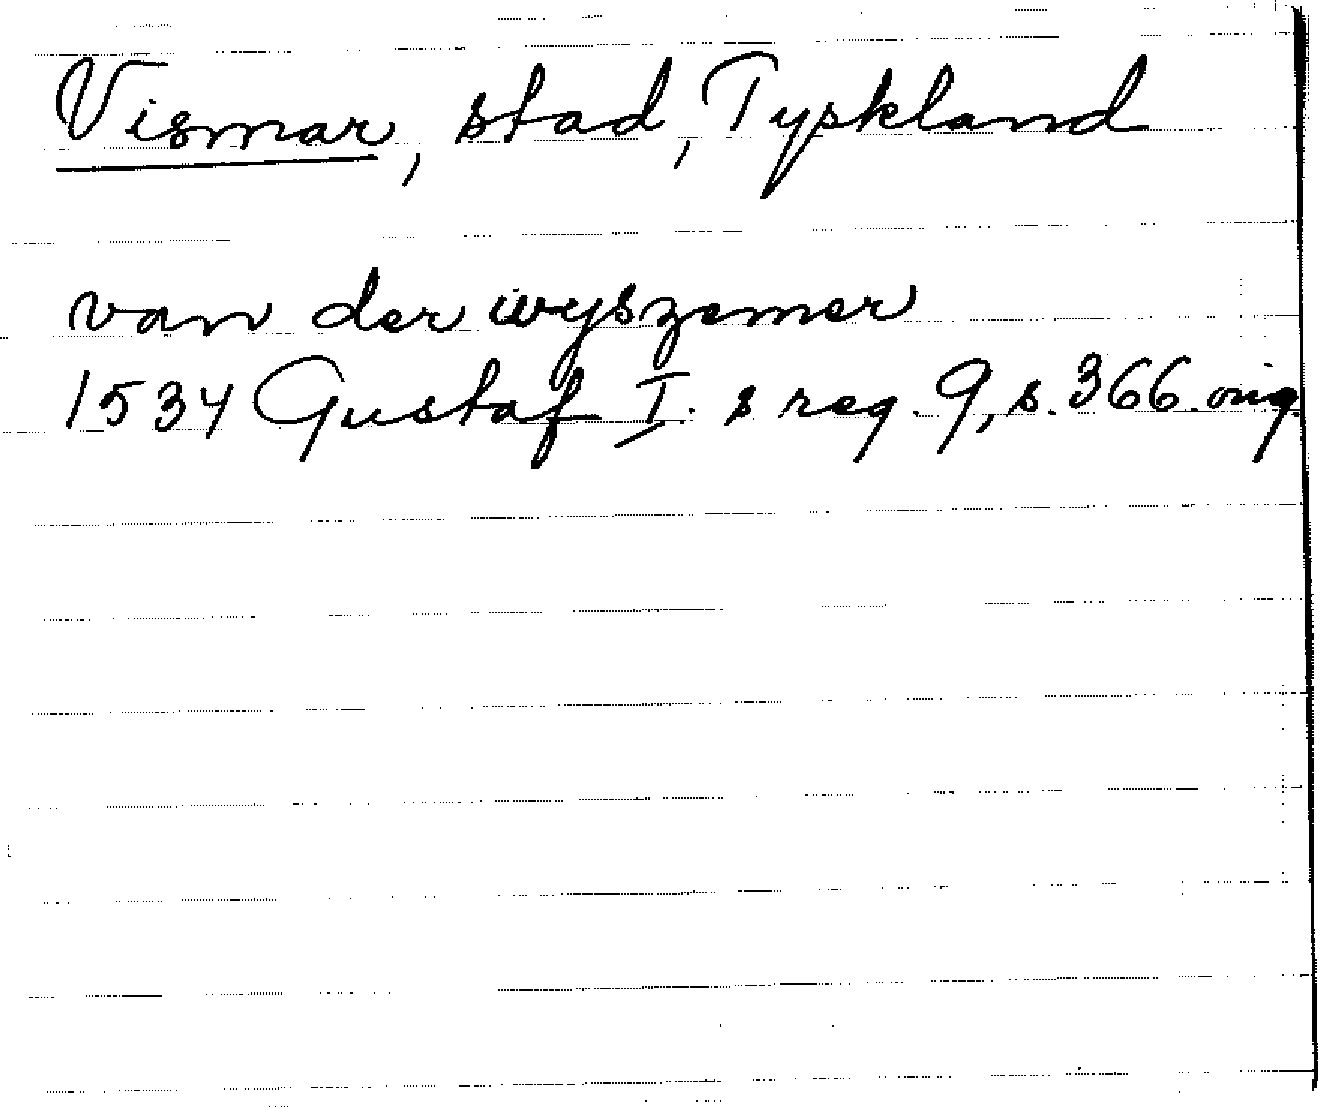 Vismar, stad, Tyskland
van der wyszemer
1534 Gustaf I. s reg. 9, s. 366. orig.